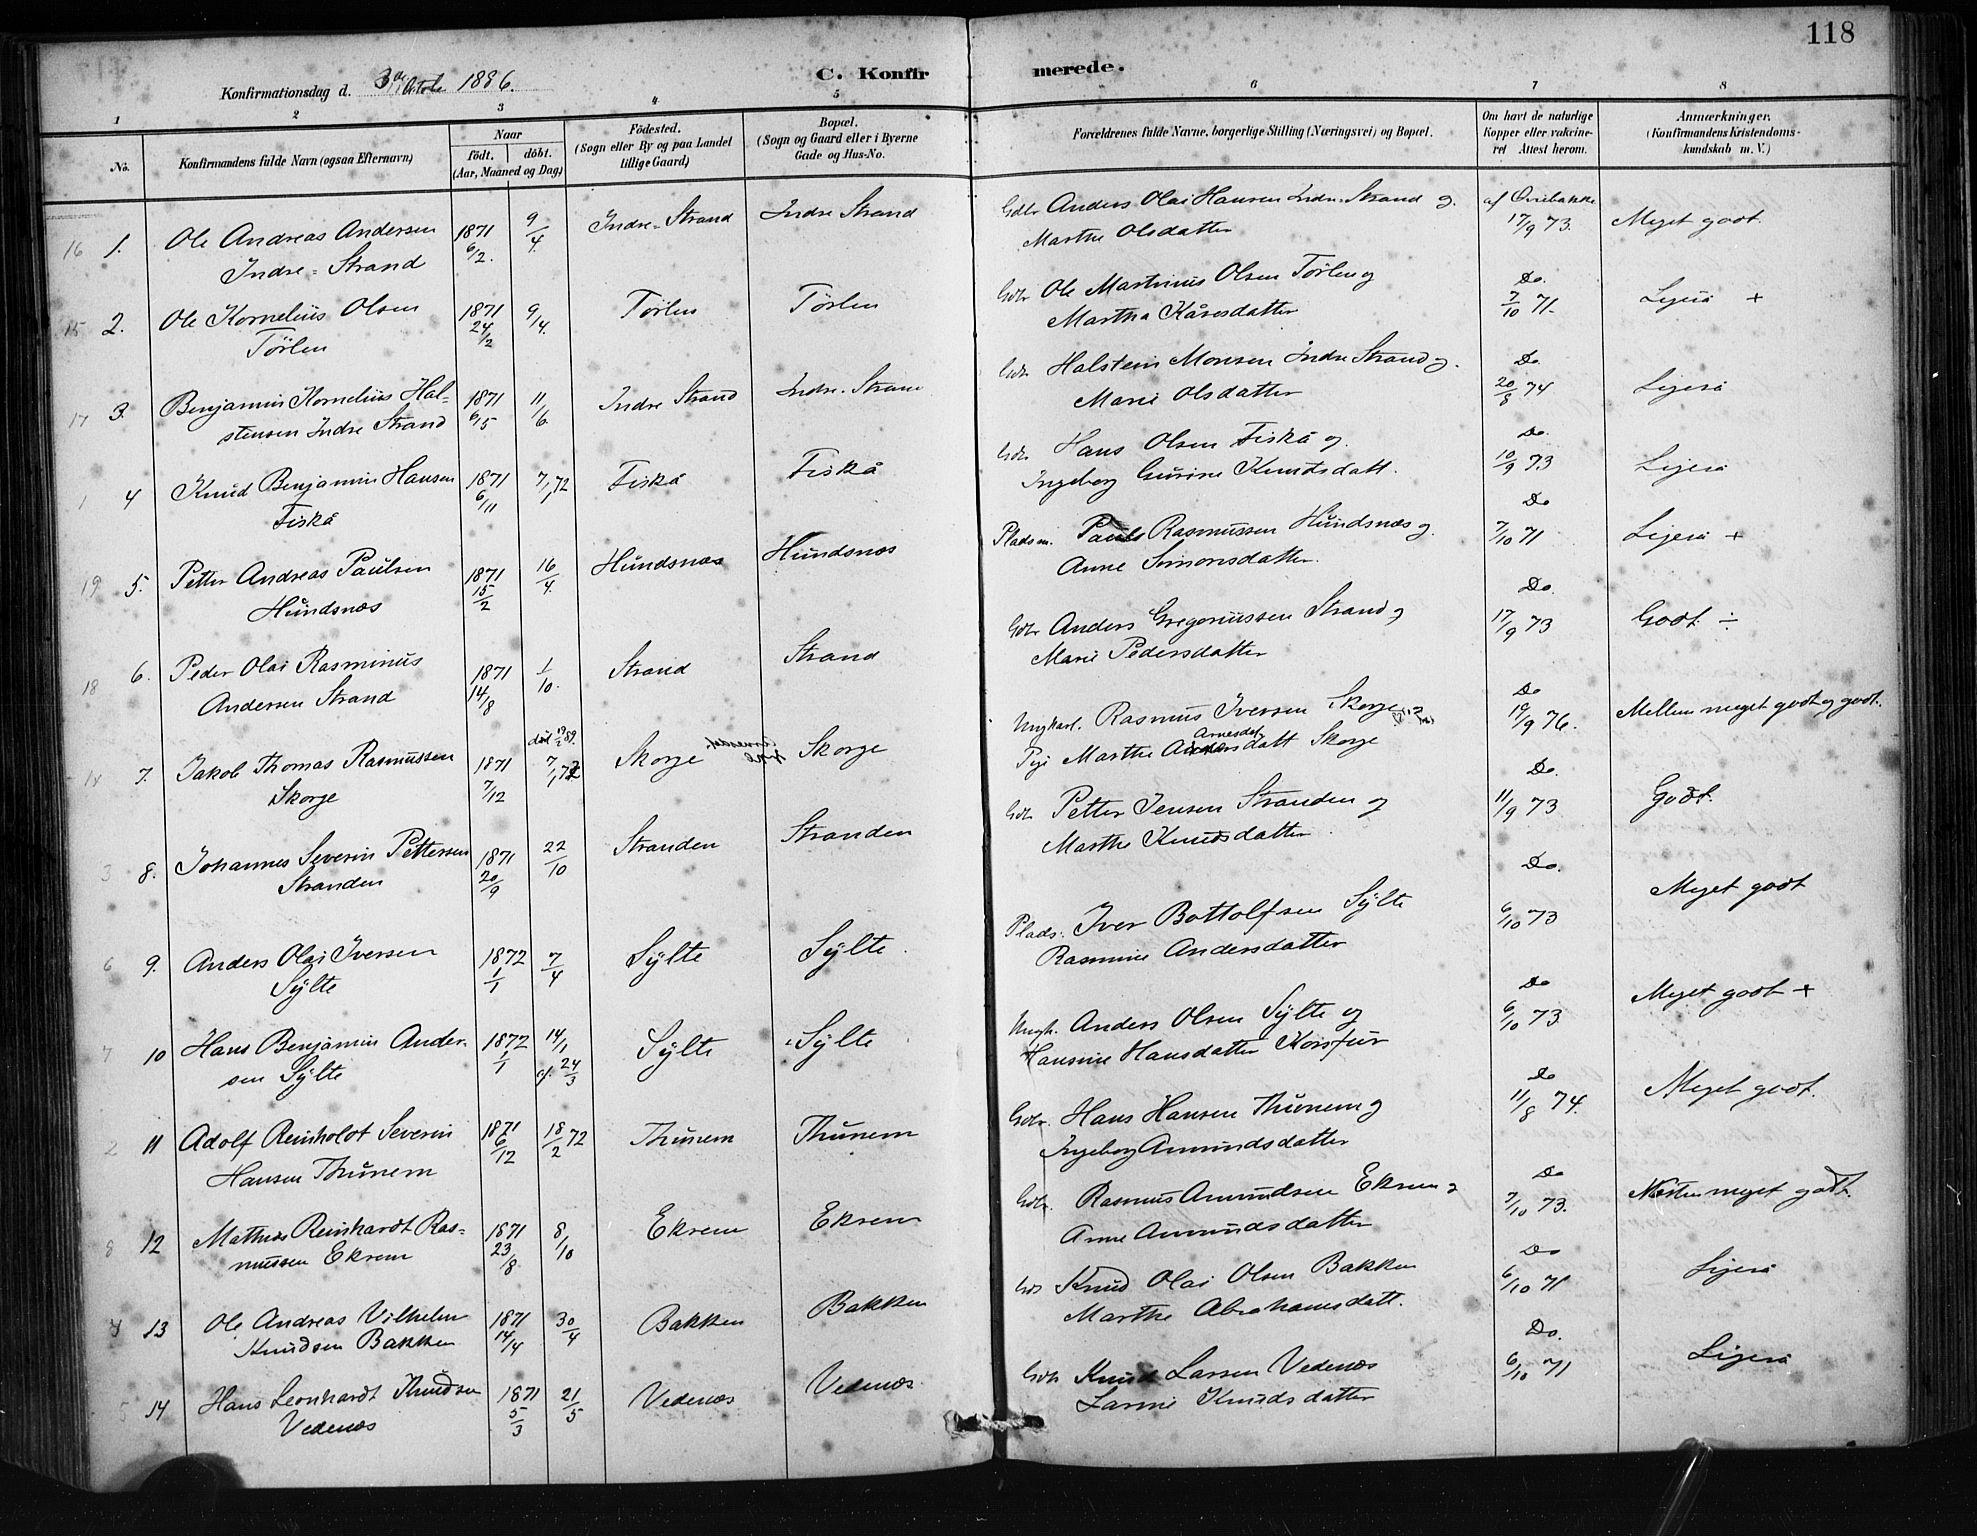 118
Konfirmationsdag d. 3die Oktobr 1886.
C. Konfirmerede.
1 2 3 4 5 6 7 8
No.
Konfirmandens fulde Navn (ogsaa Efternavn)
Naar
födt. döbt.
(Aar, Maaned og Dag)
Födested.
(Sogn eller By og paa Landet
tillige Gaard)
Bopæl.
(Sogn og Gaard eller i Byerne
Gade og Hus-No.
Forældrenes fulde Navne, borgerlige Stilling (Næringsvei) og Bopæl.
Om havt de naturlige
Kopper eller vakcine-
ret Attest herom.
Anmærkninger.
(Konfirmandens Kristendoms-
kundskab m. V.)
16 1. Ole Andreas Andersen 1871 9/4. Indre-Strand Indre Strand Gdbr Anders Olai Hansen Indre-Strand og af Øvrebakke
Indre-Strand 6/2. Marthe Olsdatter 17/9 73. Meget godt.
15 2. Ole Kornelius Olsen 1871 9/4. Tørlen Tørlen Gdbr Ole Martinus Olsen Tørlen og Do. Ligeså +
Tørlen 24/2 Martha Kåresdatter 7/10 71.
17 3. Benjamin Kornelius Hal- 1871 11/6. Indre Strand Indre-Strand Gdbr Halstein Monsen Indre Strand og Do.
stensen Indre Strand 6/5 Marie Olsdatter 20/8 74 Ligeså
1 4 Knud Benjamin Hansen 1871 7/1 72 Fiskå Fiskå Gdbr Hans Olsen Fiskå og Do.
Fiskå 6/11 Ingeborg Gurine Knudsdatt. 10/9 73 Ligeså
19 5. Petter Andreas Paulsen 1871 16/4. Hundsnæs Hundsnæs Pladsm. Paul Rasmussen Hundsnæs og Do
Hundsnæs 15/2 Anne Simonsdatter. 7/10 71 Ligeså +
18 6. Peder Olai Rasminus 1871 1/10. Strand Strand Gdbr Anders Gregoriussen Strand og Do.
Andersen Strand 14/8 Marie Pedersdatter 17/9 73 Godt ÷
7. Jakob Thomas Rasmussen 1871 7/1 72 Skorge Skorge Ungkarl. Rasmus Iversen Skorge Do
Skorge 7/12 Pige Marthe Arnesdatt Skorge 19/9 76. Mellem meget godt og godt.
3 8. Johannes Severin Pettersen 1871 22/10 Stranden Stranden Gdbr Petter Jensen Stranden og Do.
Stranden 20/9 Marthe Knudsdatter 11/9 73 Godt.
6 9. Anders Olai Iversen 1872 7/4 Sylte Sylte Plads. Iver Bottolfsen Sylte Do.
Sylte 1/1 Rasmine Andersdatter 6/10 73 Meget godt
7 10 Hans Benjamin Ander- 1872 14/1 Sylte Sylte Ungk. Anders Olsen Sylte og Do
sen Sylte 1/1 24/3 Hansine Hansdatter Korsfur 6/10 73 Meget godt +
2 11 Adolf Reinholdt Severin 1871 18/2 72 Thunem Thunem Gdbr. Hans Hansen Thunem og Do
Hansen Thunem 6/12 Ingeborg Amundsdatter 11/8 74. Meget godt.
8 12 Mathias Reinhardt Ras- 1871 8/10 Ekrem Ekrem Gdbr. Rasmus Amundsen Ekrem og Do
mussen Ekrem 23/8 Anne Amundsdatter 7/10 73. Næsten meget godt.
4 13 Ole Andreas Vilhelm 1871 30/4 Bakken Bakken Gdb Knud Olai Olsen Bakken Do
Knudsen Bakken 14/4 Marthe Abrahamsdatt. 6/10 71 Ligeså
5 14 Hans Leonhardt Knudsen 1871 21/5 Vedenæs Vedenæs Gdbr Knud Larsen Vedenæs Do.
Vedenæs 5/3 Larine Knudsdatter 6/10 71 Ligeså